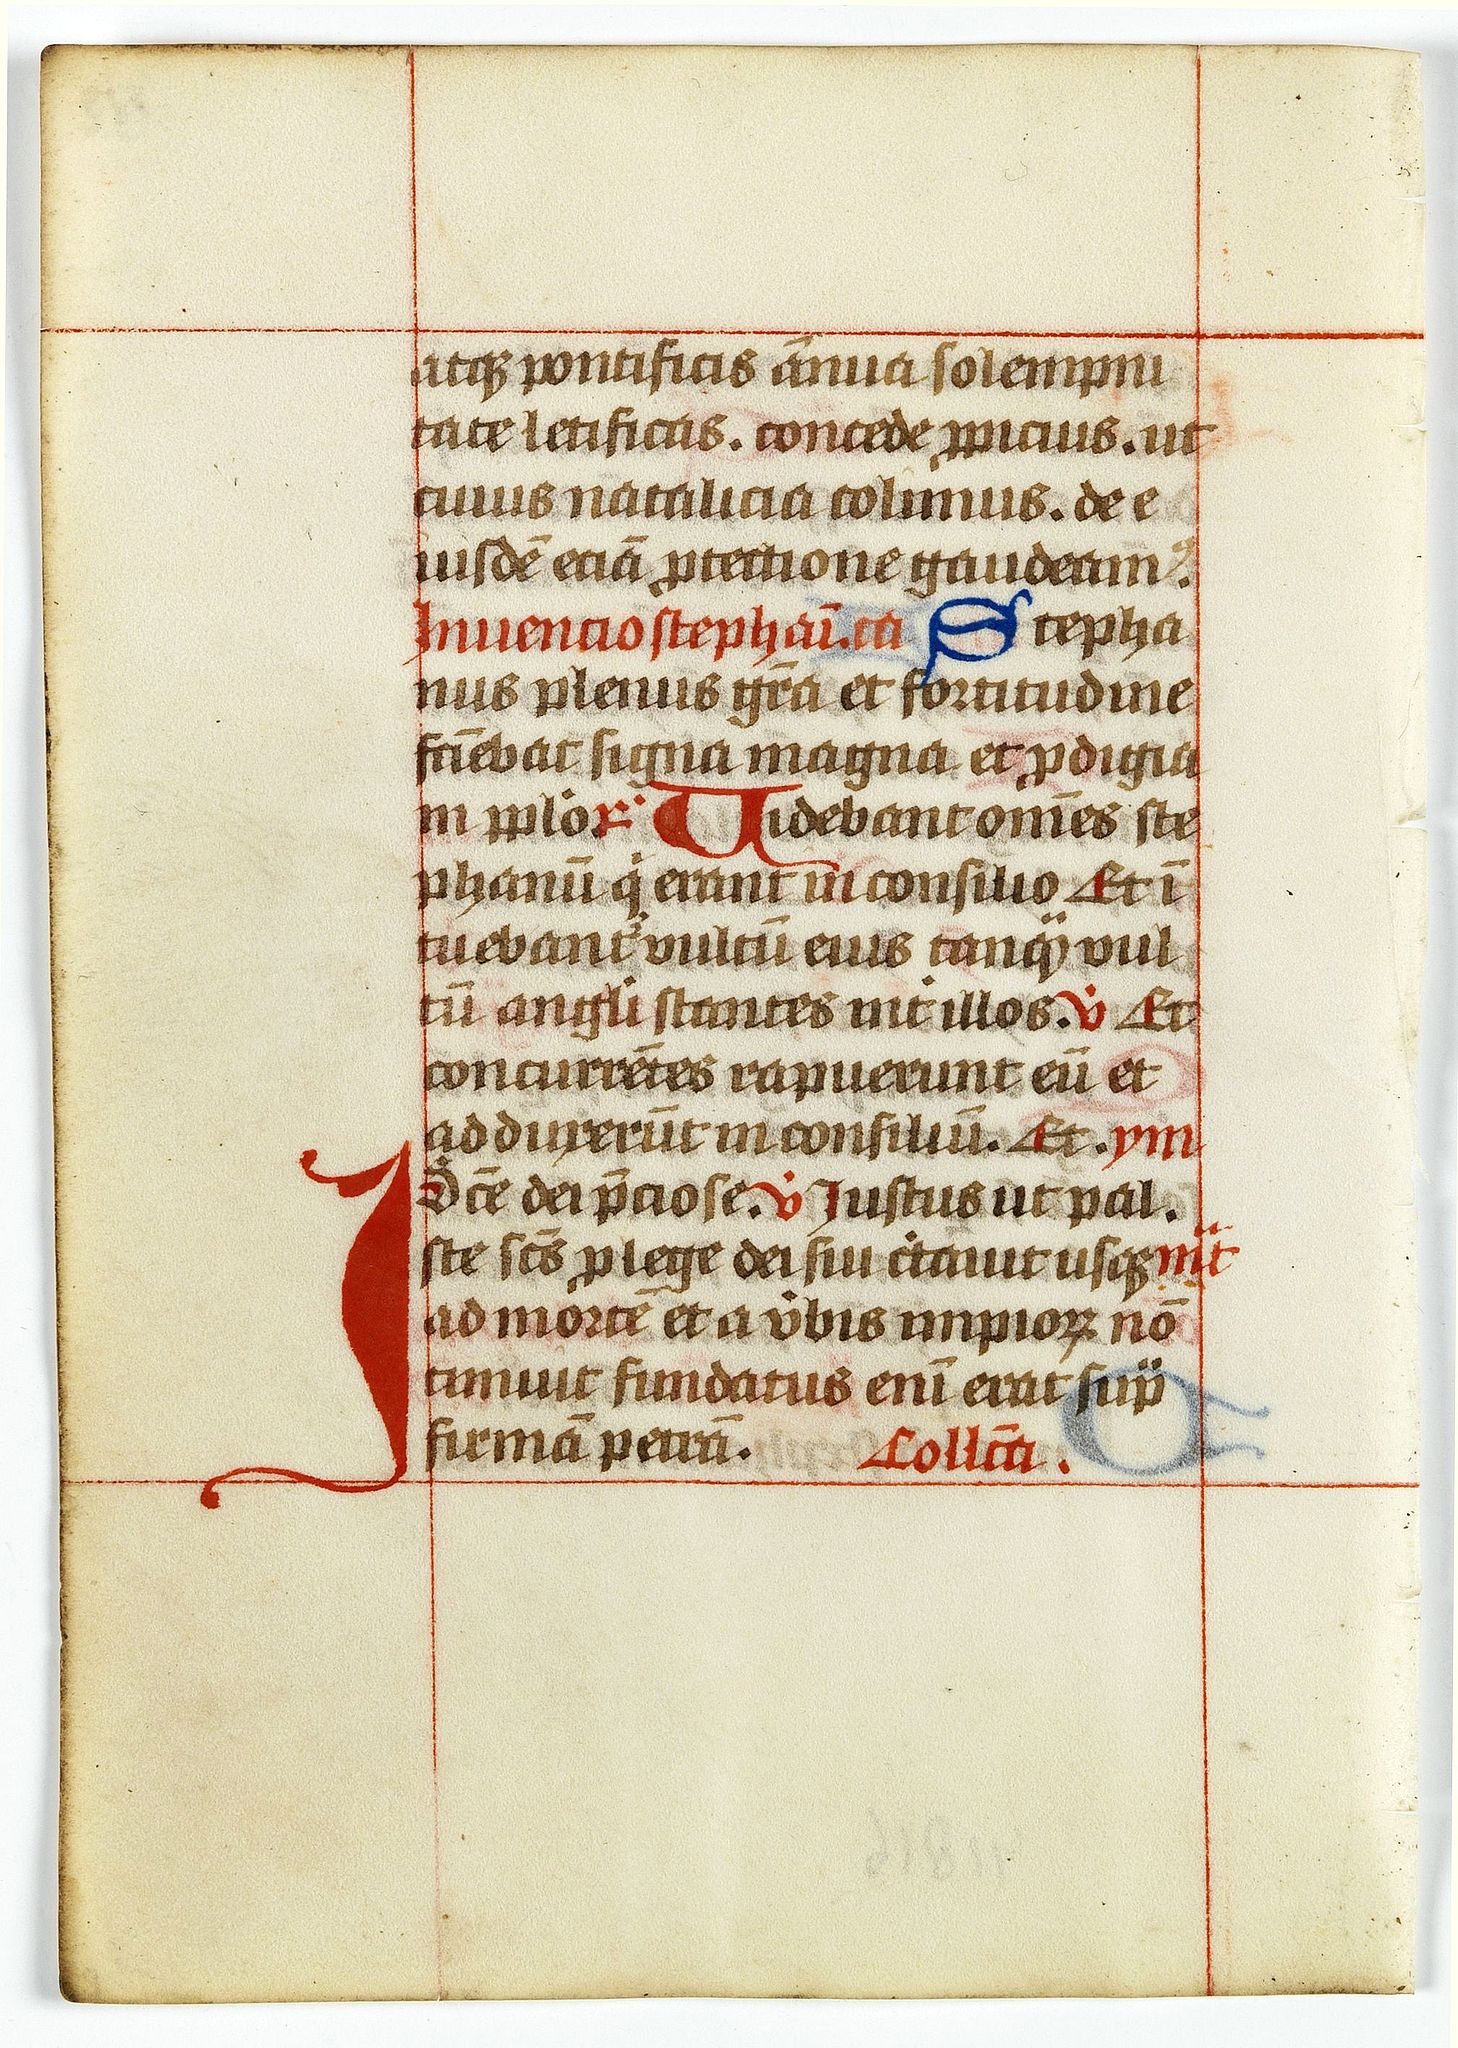 atqꝫ pontificis ān̄ua solempni
tate letificas. concede ꝓpicius. ut
cuius natalicia colimus. de e
iusdē eciā ꝓtectione gaudeamꝰ.
Inuencio stephaī. ca Stepha
nus plenus gr̄a et fortitudine
faciebat signa magna et ꝓdigia
in pplo. rꝰ Uidebant om̄es ste
phanū qͥ erant in consilio Et ī
tuebantᷣ vultū eius tanqͣ vul
tū angli stantes int̉ illos. v̉ Et
concurrētes rapuerunt eū et
adduxerūt in consiliū. Et. ym
Dc̄e dei p̄ciose. v̉ Justus ut pal.
Iste sc̄s ꝓ lege dei sui c̉tauit usqꝫ m̄t
ad mortē et a v̉bis impioꝝ nō
timuit fundatus enī erat sup̄
firmā petrā. Collc̄ta.